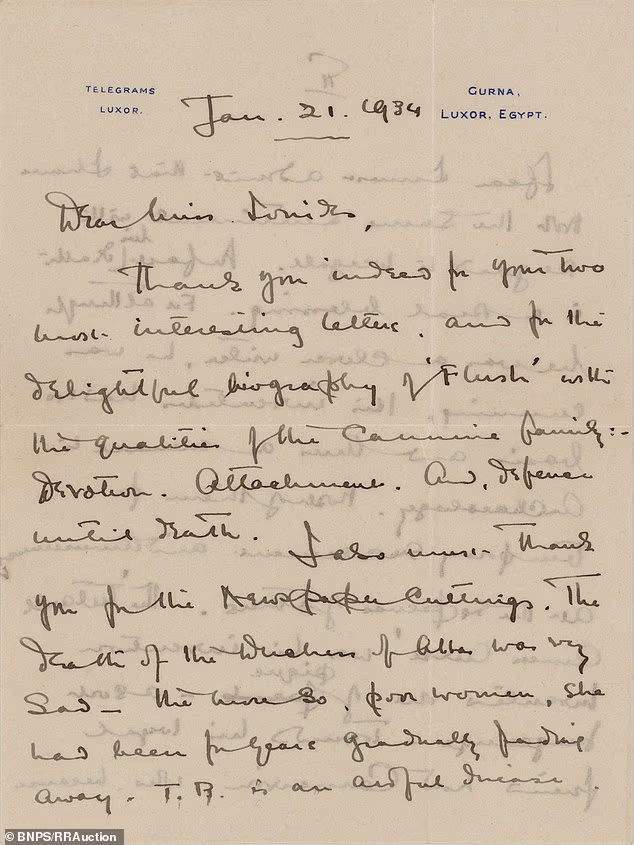 TELEGRAMS
LUXOR.
GURNA,
LUXOR, EGYPT.
Jan. 21. 1934
Dear Miss Ionides,
Thank you indeed for your two
most interesting letters, and for the
delightful biography of 'Flush' with
the qualities of the Cannine family:-
Devotion. Attachment. And, defence
until death. I also must thank
you for the Newspaper Cuttings. The
death of the Duchess of Alba was very
Sad — the more so, poor women, she
had been for years gradually fading
away. T.B. is an awful disease.
© BNPS/RRAuction